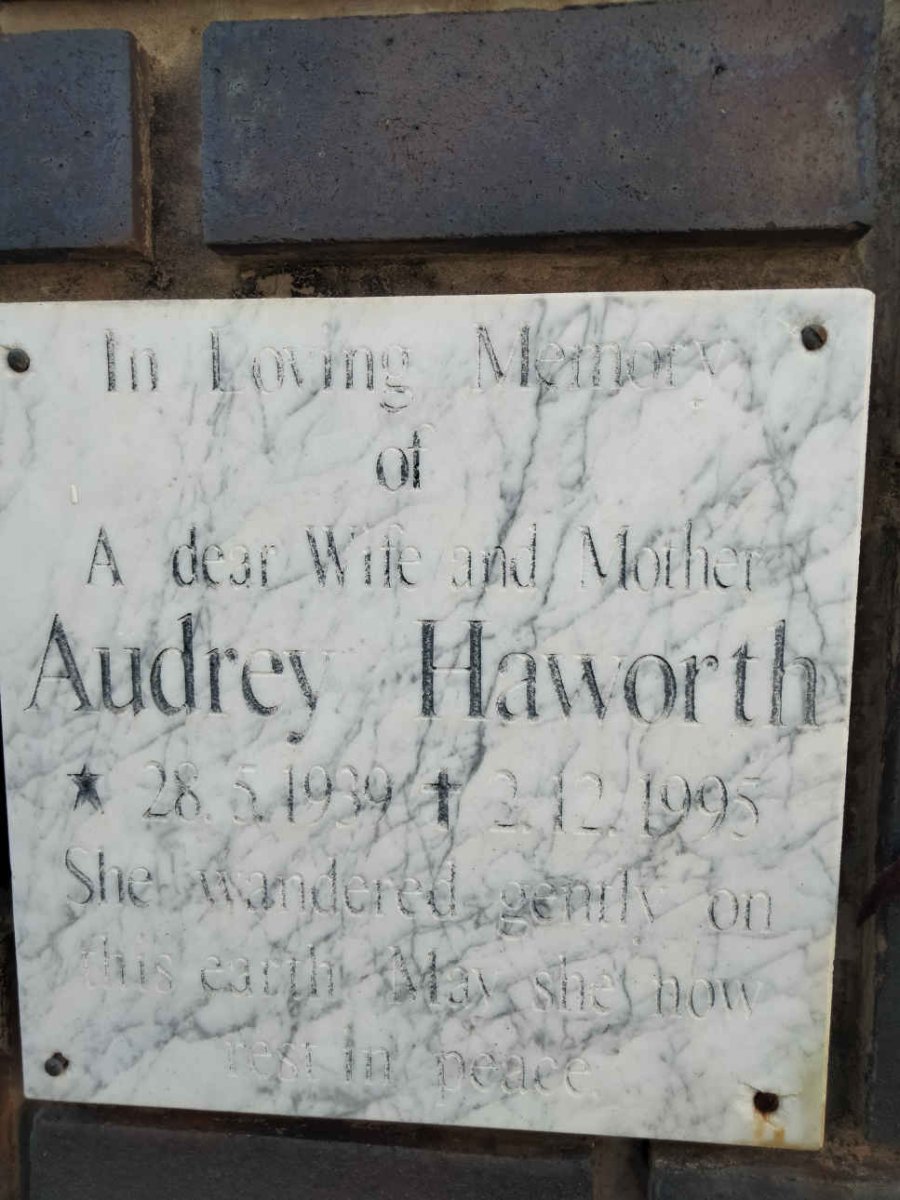 In Loving Memory
of
A dear Wife and Mother
Audrey Haworth
★ 28.5.1939 ✝ 2.12.1995
She wandered gently on
this earth. May she now
rest in peace.